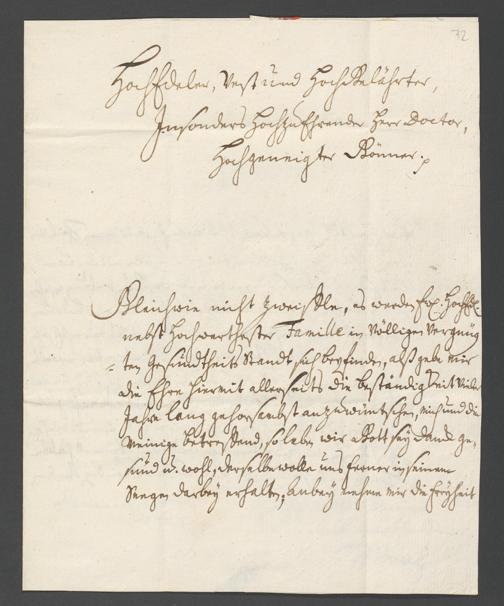 72
HochEdeler, Vest und HochGelährter,
Insonders HochzuEhrender Herr Doctor,
Hochgeneigter Gönner.
Gleichwie nicht zweiffle, es werden Ew. HochEdl.
nebst Hochwerthester Famille in Völligen Vergnüg-
ten Gesundtheits Standt sich befinden, alß gebe mir
die Ehre hiermit allerseits die beständigkeit Viele
Jahre lang gehorsambst anzuwüntschen, mich und die
Meinige betreffend, so leben wir Gott sey danck ge-
sund u. wohl, derselbe wolle uns ferner in seinem
Seegen darbey erhalten, anbey nehme mir die freyheit